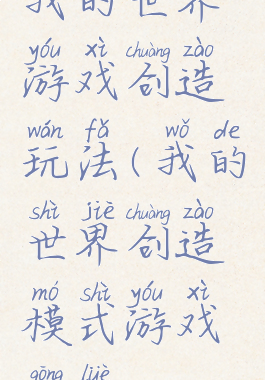 我的世界
yóu xì chuàng zào
游戏创造
wán fǎ wǒ de
玩法(我的
shì jiè chuàng zào
世界创造
mó shì yóu xì
模式游戏
gōng lüè